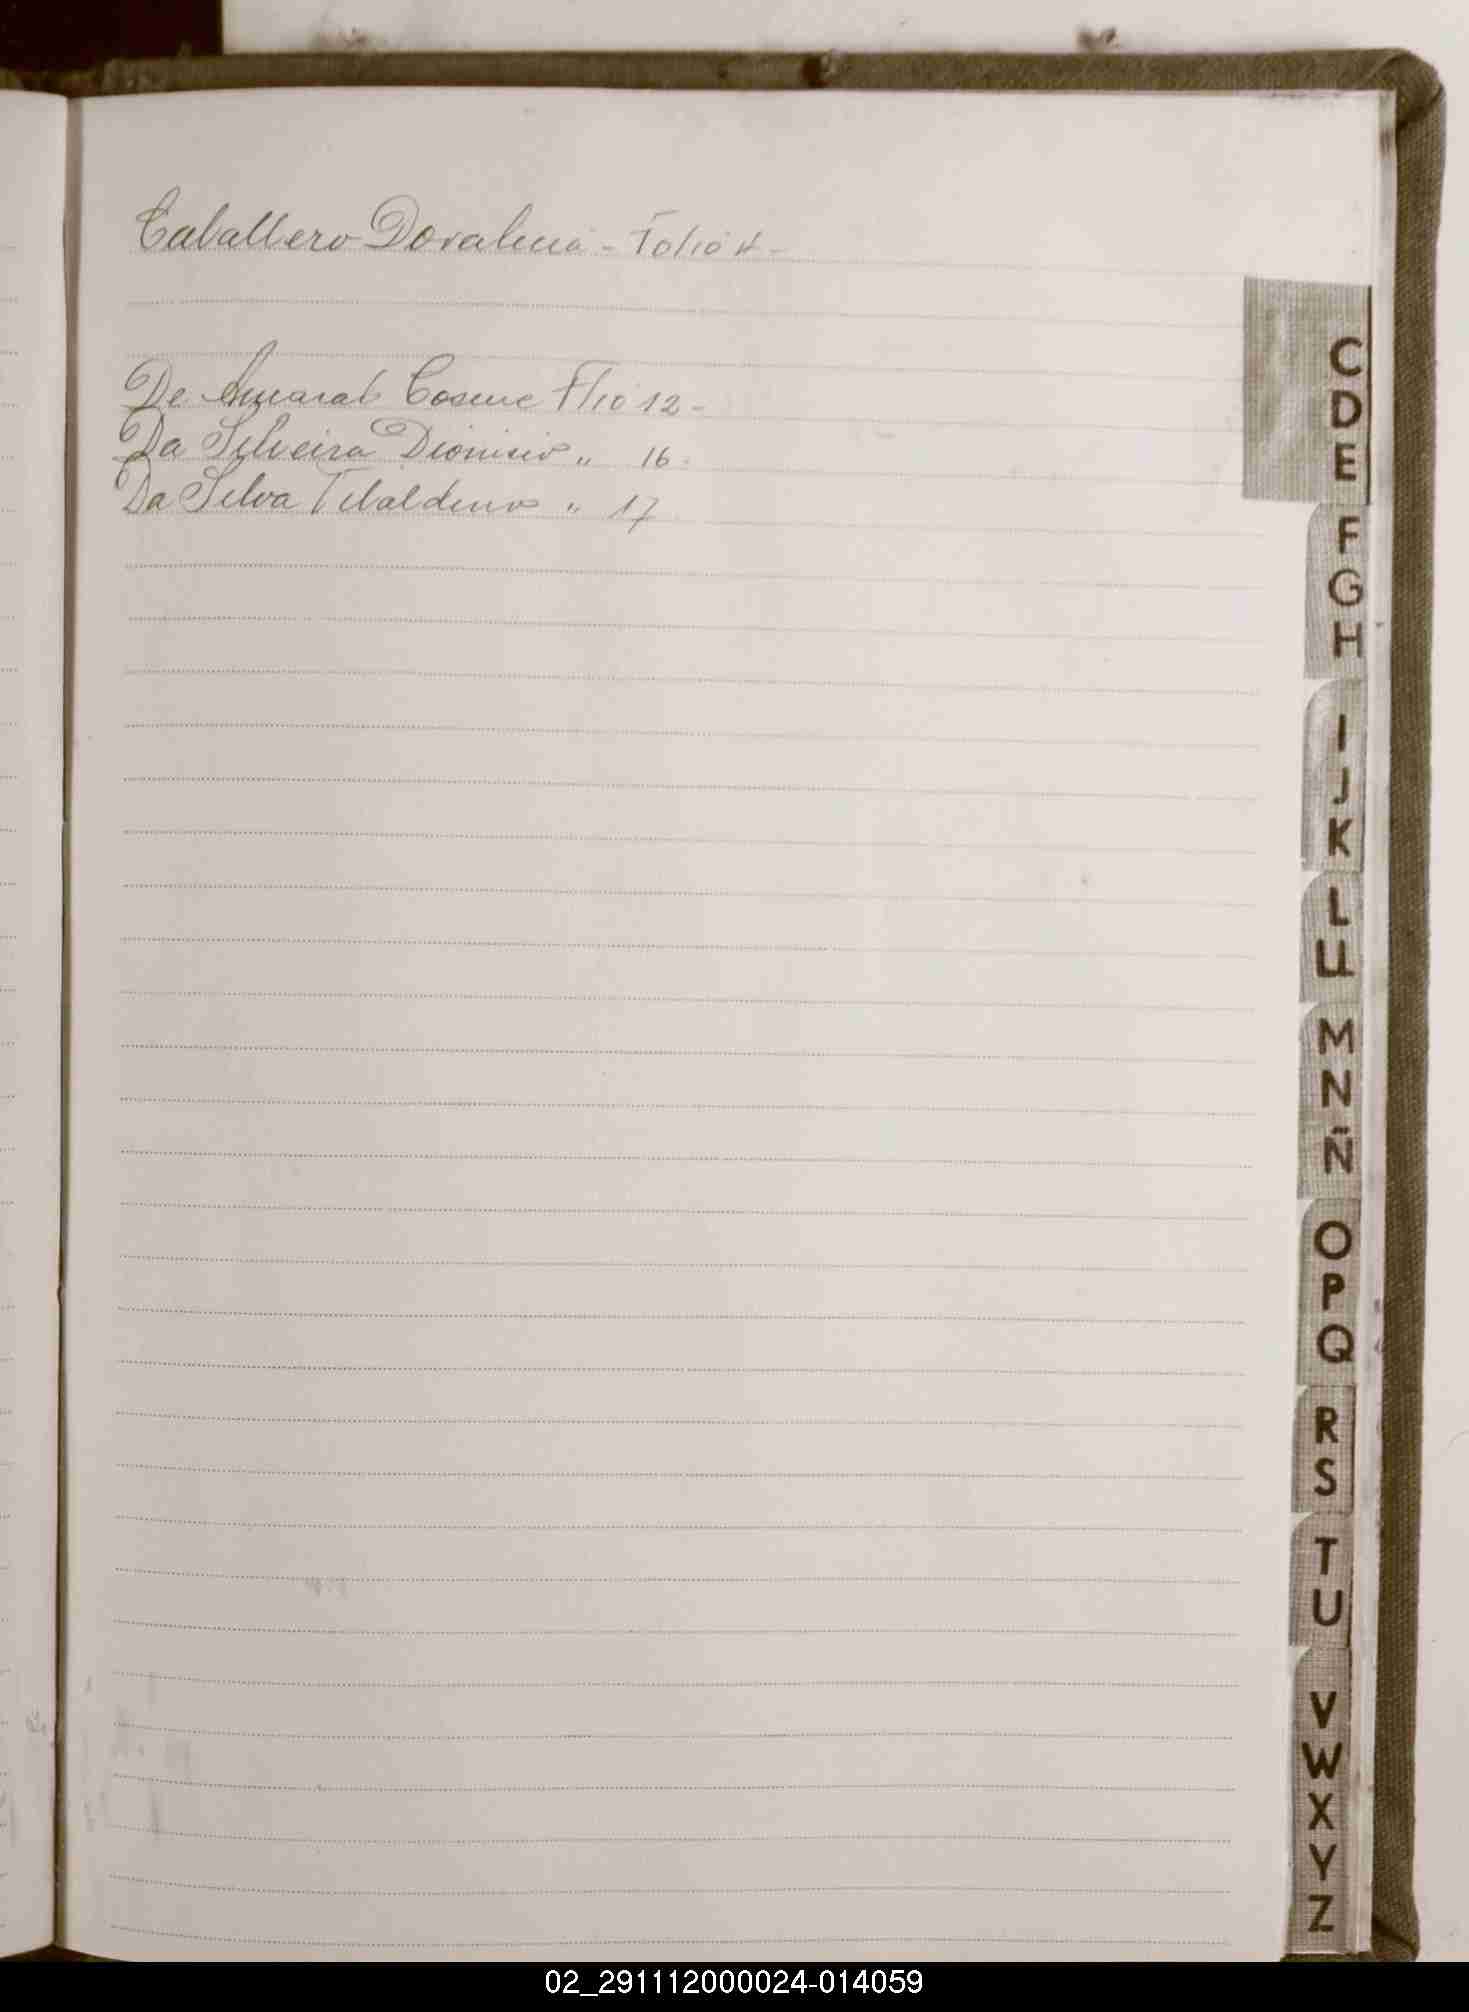 Caballero Doralina - Folio 4 -
De Amaral Cosme Flio 12 -
Da Silveira Dionisio " 16 -
Da Silva Tibaldino " 17
C
D
E
F
G
H
I
J
K
L
LL
M
N
Ñ
O
P
Q
R
S
T
U
V
W
X
Y
Z
02_291112000024-014059